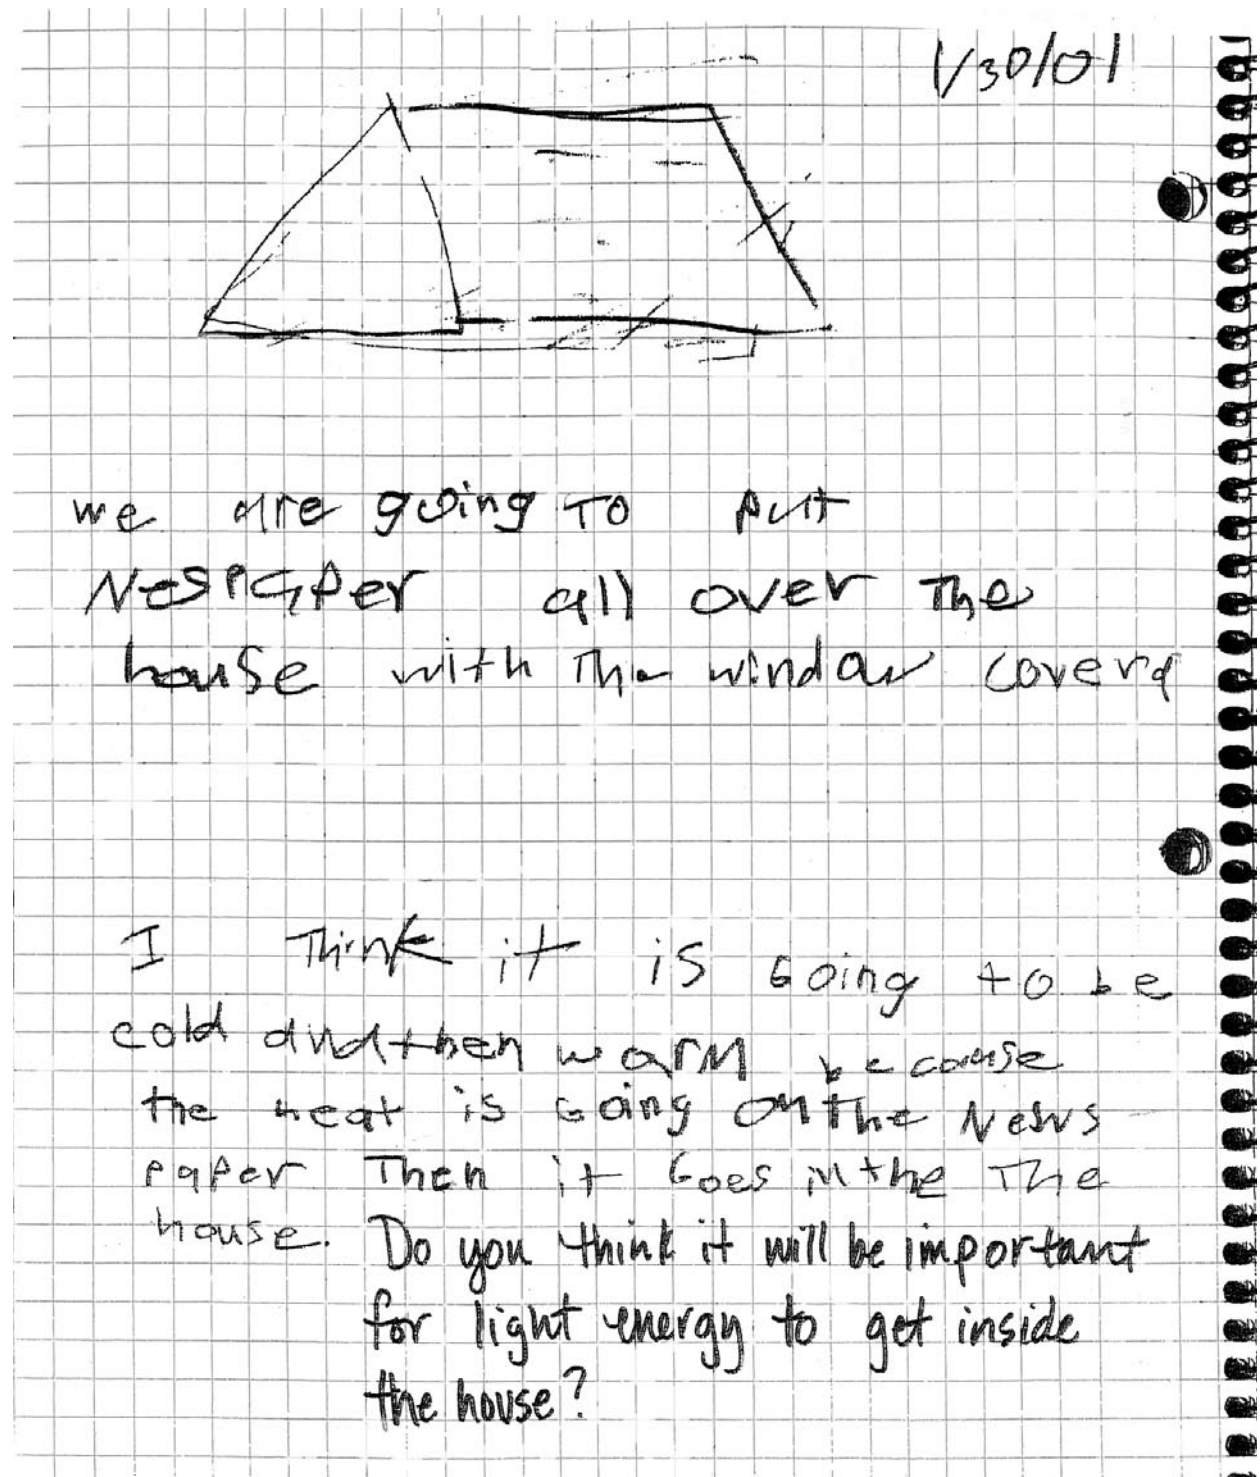 1/30/01
we are going To put
NesPaper all over The
house with The window coverd
I Think it is Going to be
cold and then warm because
the heat is Going on the News
paper Then it Goes in the The
house. Do you think it will be important
for light energy to get inside
the house?